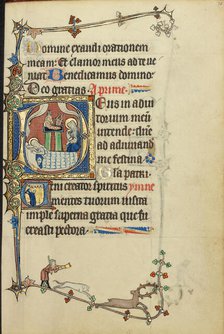 Domine exaudi orationem
meam: Et clamor meus ad te ue
niat Benedicamus domino
Deo gratias A prime
Deus in adiu
torium meu
intende: dne
ad adiuuand
me festina
Gla patri
Ueni creator spiritus ymne
mentes tuorum uisita
imple superna gratia que tu
creasti pectora